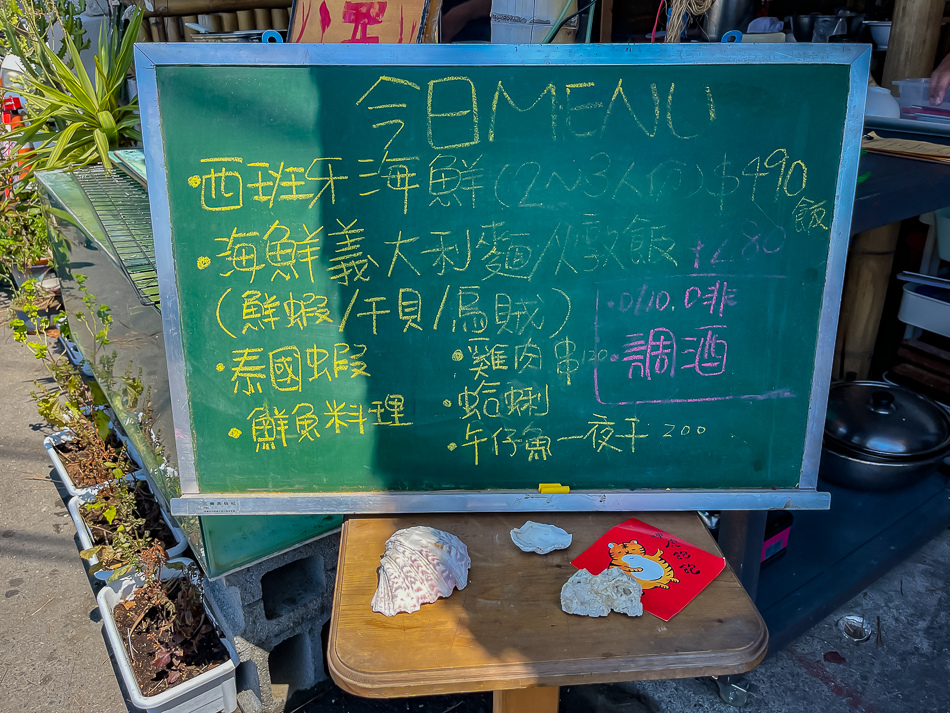 今日MENU
•西班牙海鮮飯(2~3人份)$490
•海鮮義大利麵/燉飯 280
(鮮蝦/干貝/烏賊)
•泰國蝦
•鮮魚料理
•雞肉串120
•蛤蜊
•午仔魚一夜干 200
•啡
•調酒